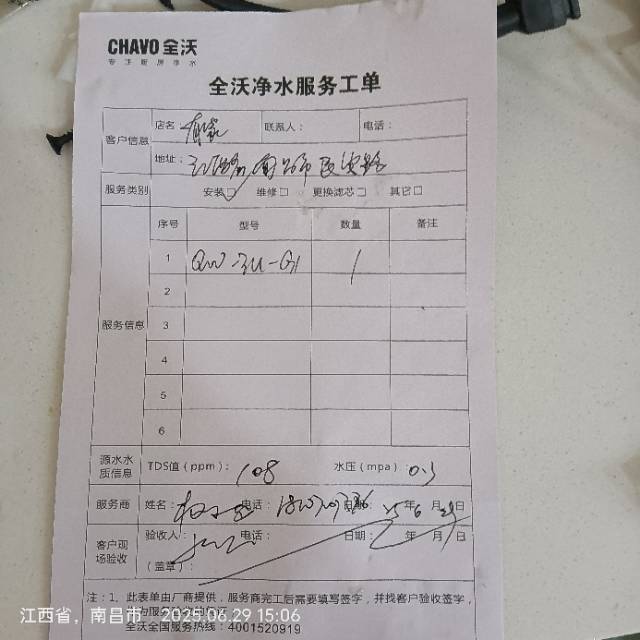 CHAVO 全沃
专注厨房净水
全沃净水服务工单
客户信息
店名： 联系人： 电话：
地址：
服务类别 安装 维修 更换滤芯 其它
服务信息
序号 型号 数量 备注
1 QW-3U-G1 1
2
3
4
5
6
源水水质信息 TDS值（ppm）： 108 水压（mpa） 0.3
服务商 姓名： 电话： 日期： 25年 6月 29日
客户现场验收 验收人： 电话： 日期： 年 月 日
（盖章）：
注：1、此表单由厂商提供，服务商完工后需要填写签字，并找客户验收签字，
全沃全国服务热线：4001520919
江西省，南昌市 2025.06.29 15:06